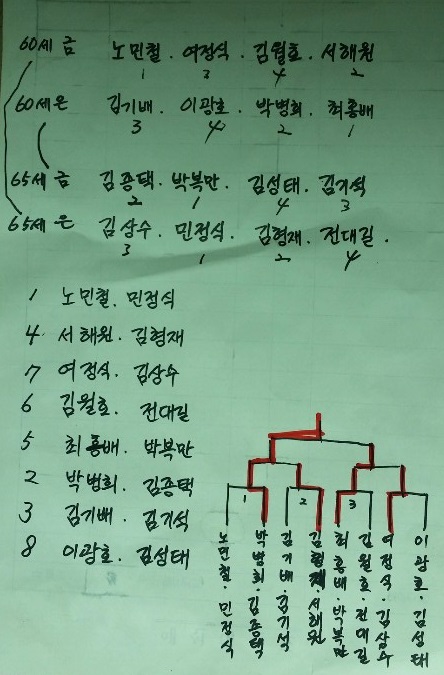 60세 금 노민철 . 여정식 . 김월호 . 서해원
1 3 4 2
60세 은 김기배 . 이광호 . 박병희 . 최홍배
3 4 2 1
65세 금 김종택 . 박복만 . 김성태 . 김기석
2 1 4 3
65세 은 김상수 . 민정식 . 김형재 . 전대길 .
3 1 2 4
1 노민철 . 민정식
4 서해원 . 김형재
7 여정식 . 김상수
6 김월호 . 전대길
5 최홍배 . 박복만
2 박병희 . 김종택
3 김기배 . 김기석
8 이광호 . 김성태
1 2 3
노민철 . 민정식
박병희 . 김종택
김기배 . 김기석
김형재 . 서해원
최홍배 . 박복만
김월호 . 전대길
여정식 . 김상수
이광호 . 김성태